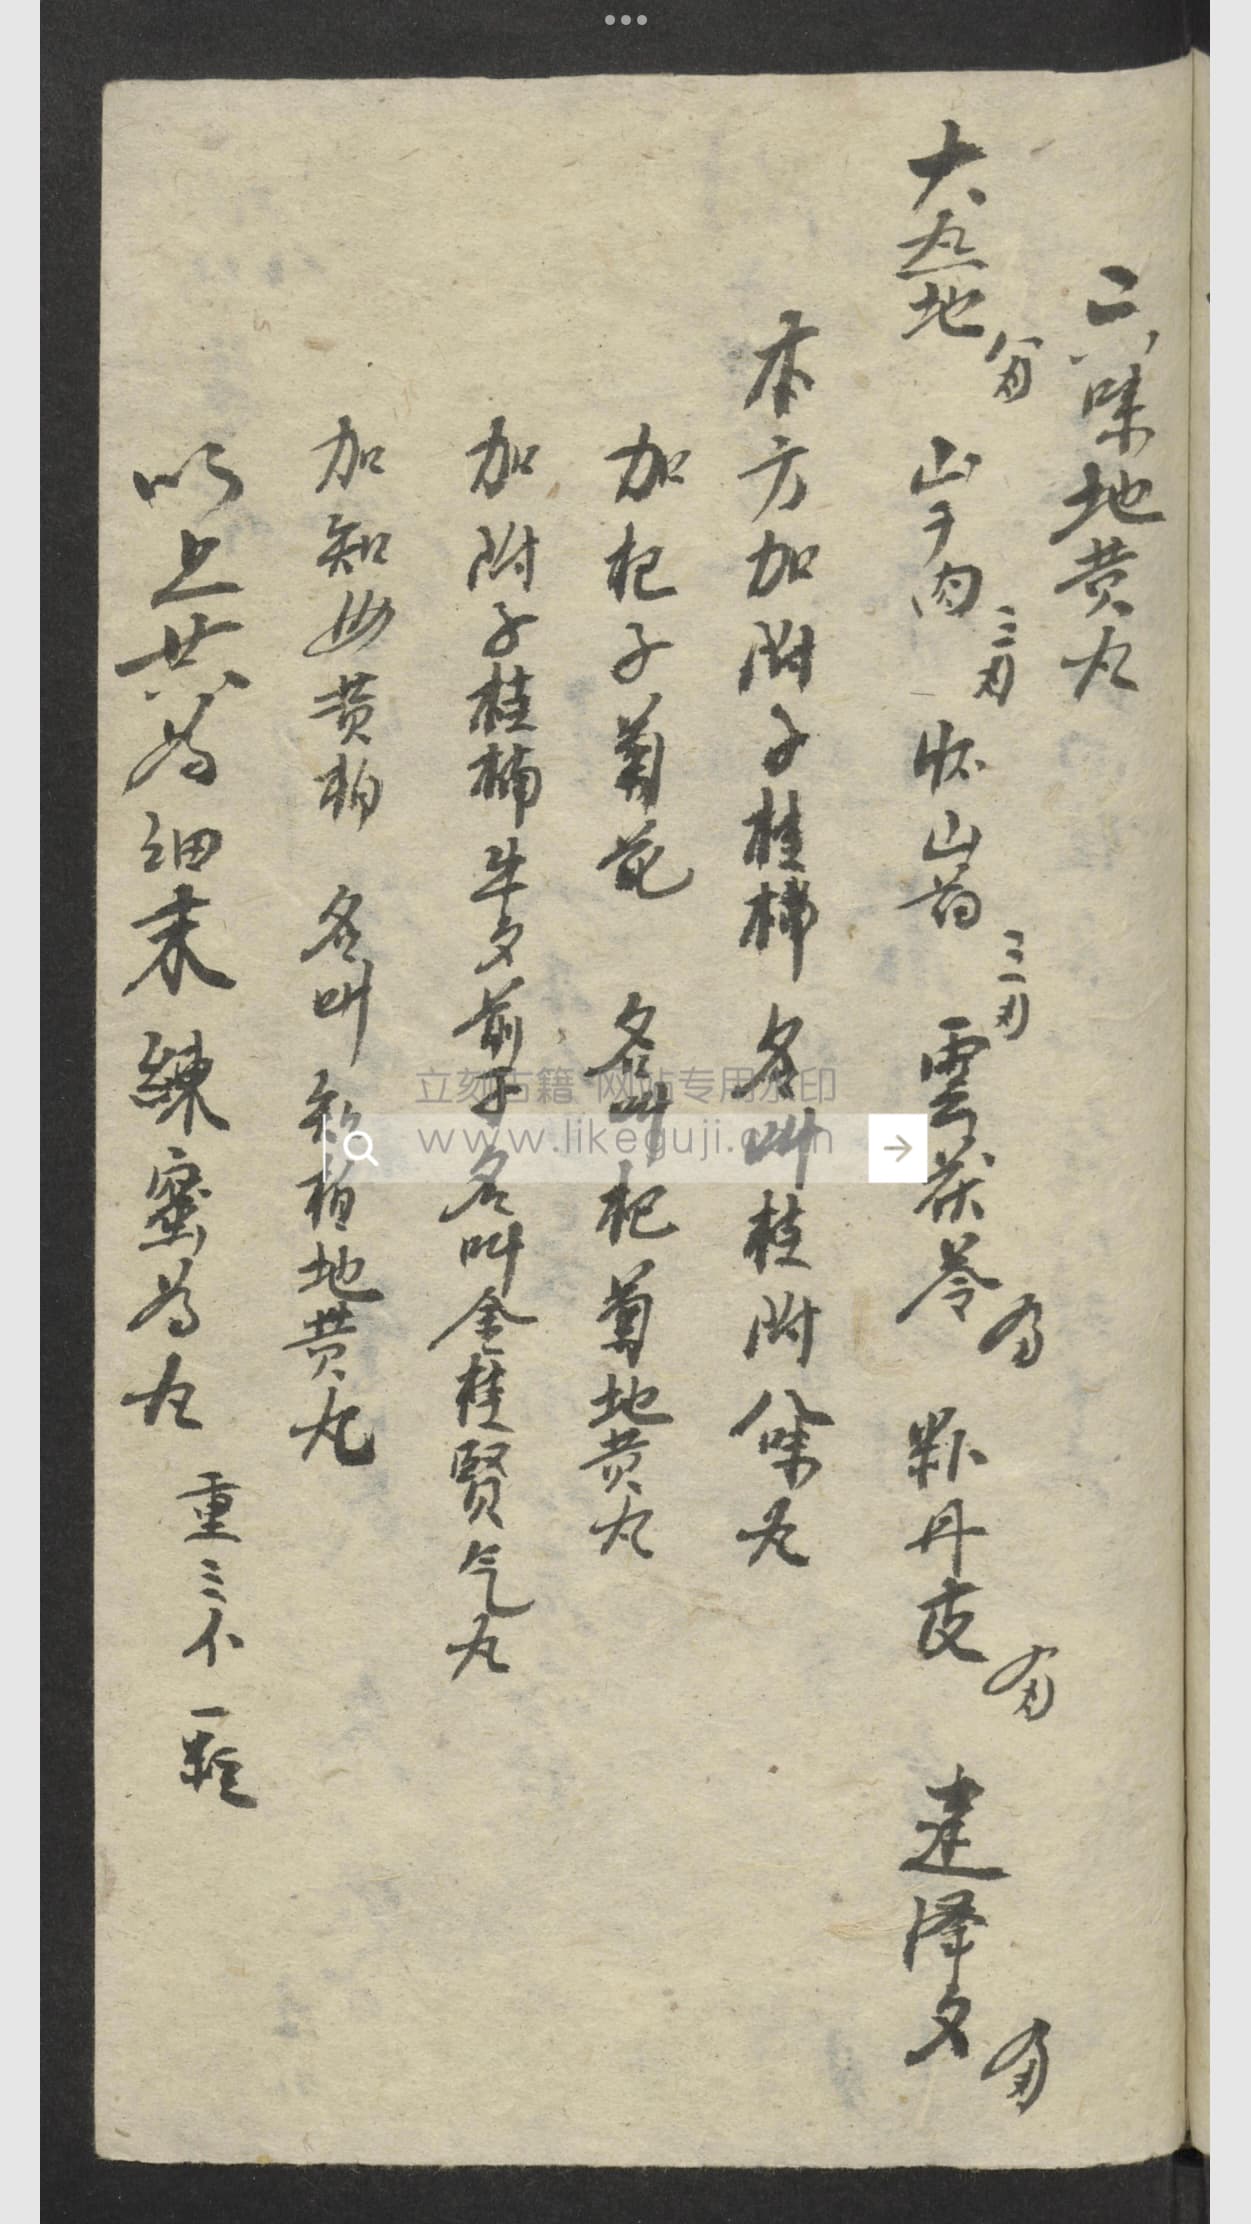 六味地黄丸
大熟地 山于肉 三刄 怀山药 三刄 雲茯苓 粉丹皮 建泽夕
本方加附子桂 名叫桂附八味丸
加杞子菊花 名叫杞菊地黄丸
加附子桂楠牛夕前子名叫金桂贤气丸
加知母黄柏 名叫知柏地黄丸
以上共为细末 練蜜为丸 重三 一
立刻古籍 网站专用水印
www.likeguji.com